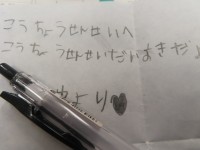 こうちょうせんせいへ
こうちょうせんせいだいすきだよ
より♥